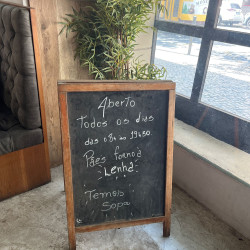 Aberto
Todos os dias
das 08h às 19h30.
Pães forno à
Lenha
Temos
Sopa